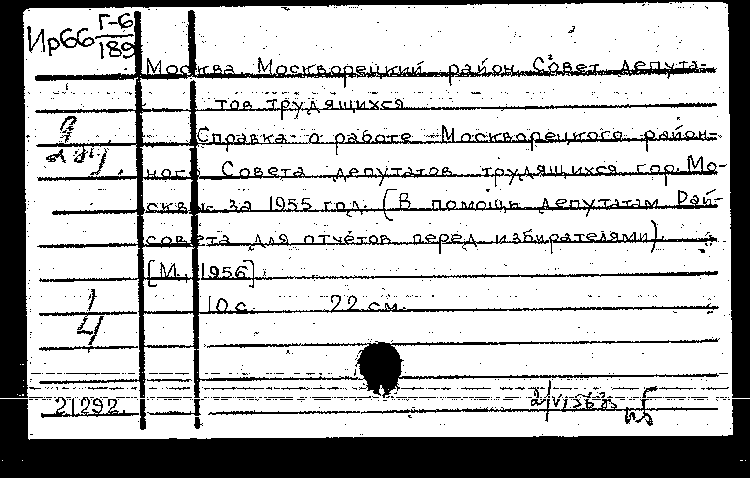 Ир66 Г-6
189
Москва. Москворецкий район. Совет депута-
тов трудящихся
Справка о работе Москворецкого район-
ного Совета депутатов трудящихся гор. Мо-
сквы за 1955 год. (В помощь депутатам Рай-
совета для отчётов перед избирателями).
[М., 1956]
10 с. 22 см.
9
2 эк.
1
4
21292.